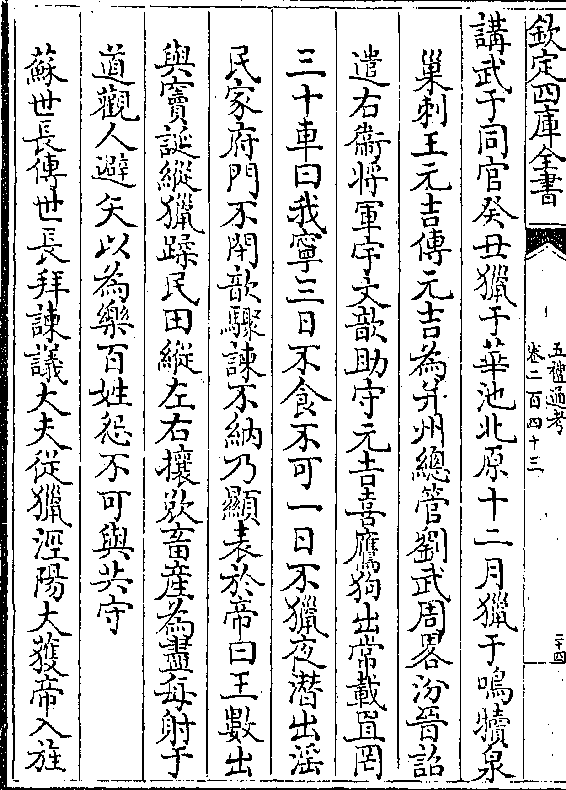 欽定四庫全書
五禮通考
卷二百四十三
二十四
講武于同官癸丑獵于華池北原十二月獵于鳴犢泉
巢刺王元吉傳元吉為并州總管劉武周畧汾晉詔
遣右衛將軍宇文歆助守元吉喜鷹狗出常載罝罔
三十車曰我寧三日不食不可一日不獵夜潛出滛
民家府門不閉歆驟諫不納乃顯表於帝曰王數出
與竇誕縱獵蹂民田縱左右攘敓畜產為盡每射于
道觀人避矢以為樂百姓怨不可與共守
蘇世長傳世長拜諫議大夫從獵涇陽大獲帝入旌